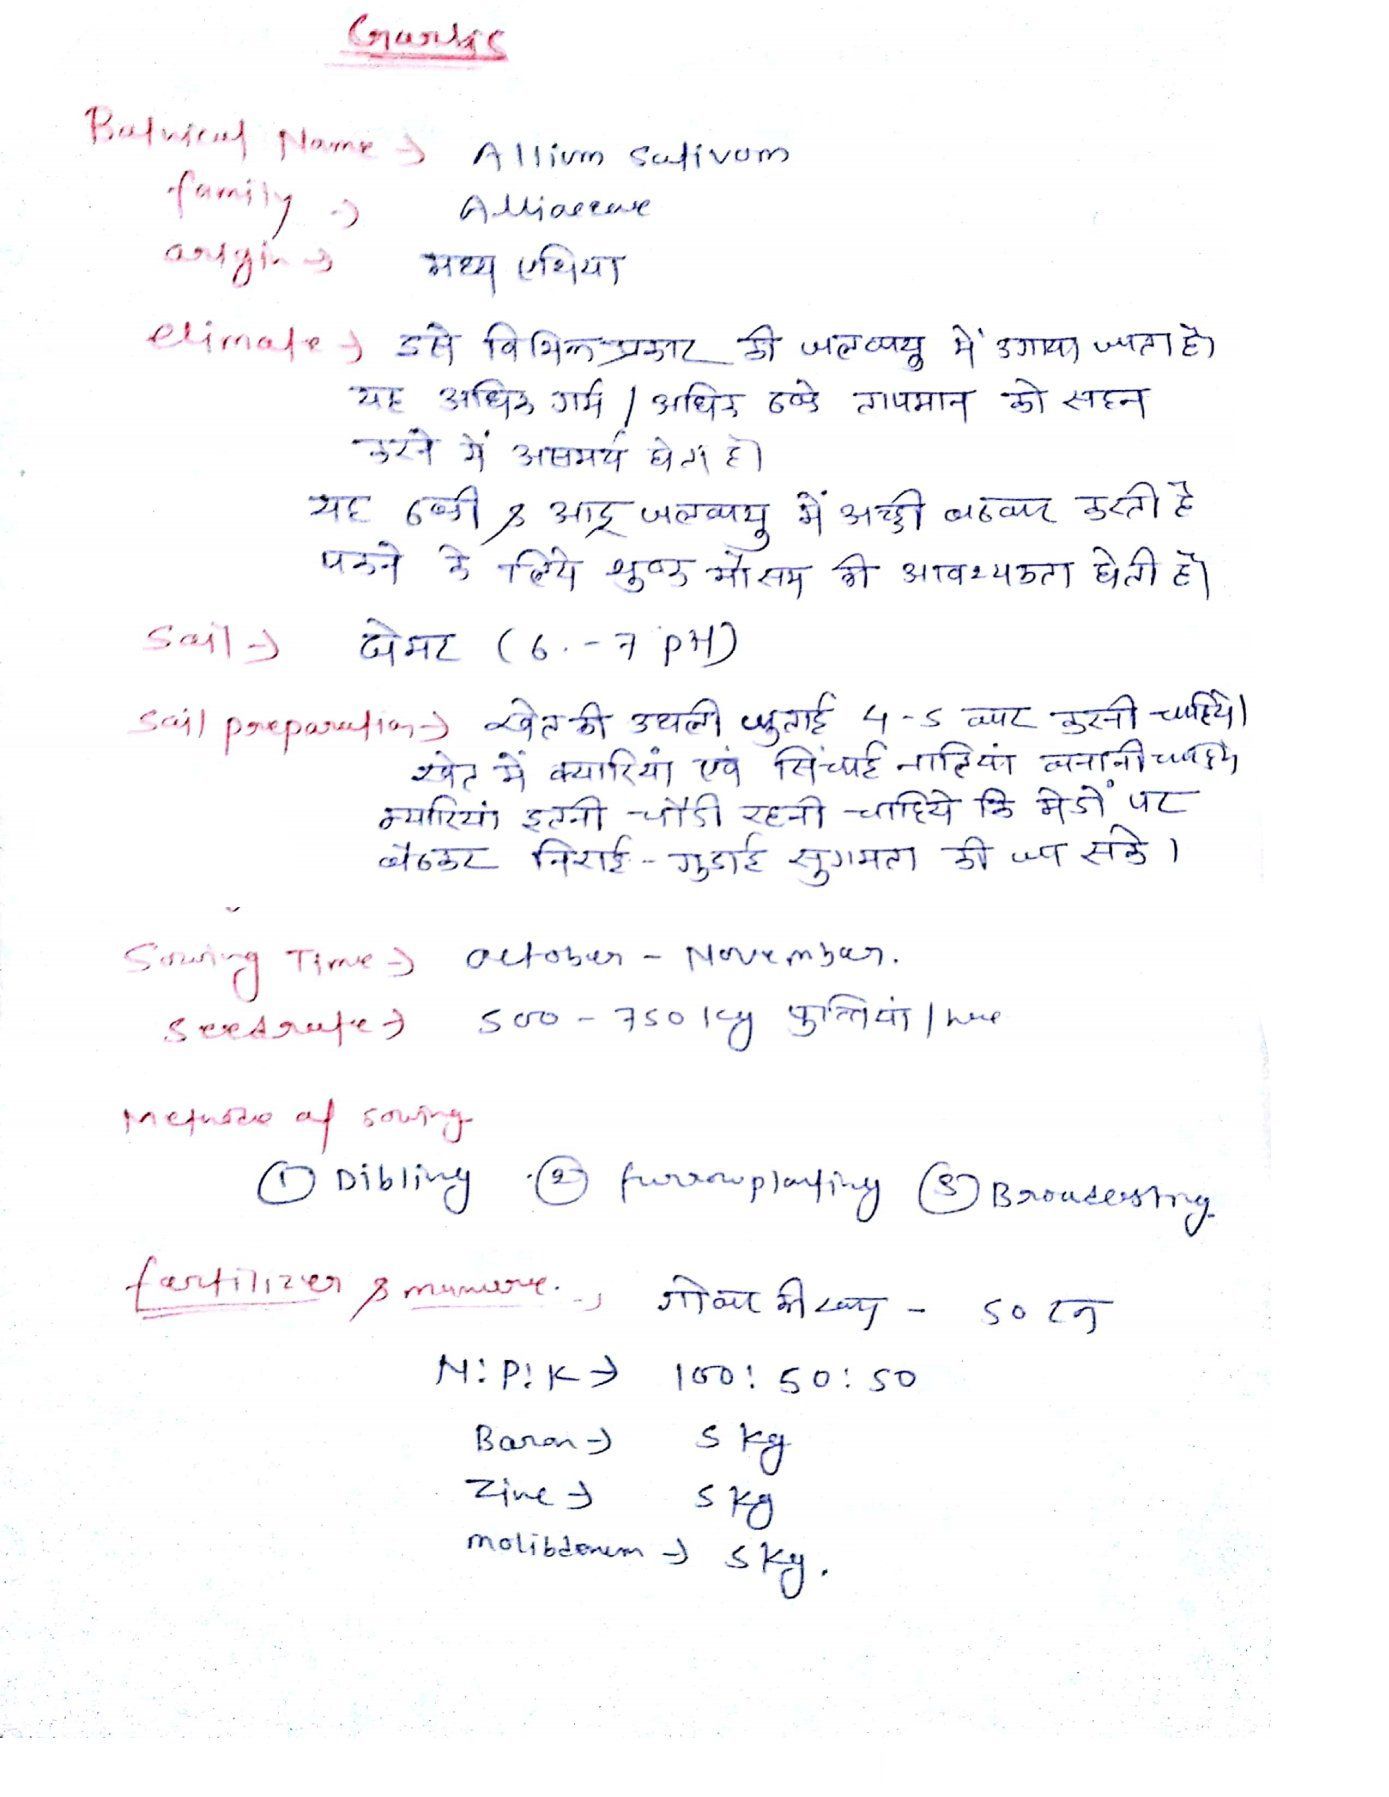 Garlic
Botnical Name → Allium Sativum
family → Alliaceae
origin → मध्य एशिया
climate → इसे विभिन्न प्रकार की जलवायु में उगाया जाता है।
यह अधिक गर्म / अधिक ठण्डे तापमान को सहन
करने में असमर्थ होता है।
यह ठण्डी & आद्र जलवायु में अच्छी बढवार करती है
पकने के लिये शुष्क मौसम की आवश्यकता होती है।
Soil → दोमट (6.-7 pH)
Soil preparation → खेत की उथली जुताई 4-5 बार करनी चाहिये।
खेत में क्यारियां एवं सिंचाई नालियां बनानी चाहिये
क्यारियां इतनी चौडी रहनी चाहिये कि मेडों पर
बैठकर निराई-गुडाई सुगमता की जा सके।
Sowing Time → October - November.
Seedrate → 500 - 750 kg कुलियां / hec
Methods of sowing
① Dibling ② furrow planting ③ Broadcasting
fertilizer & manure. → गोबर की खाद - 50 टन
N:P:K → 100:50:50
Boron → 5 kg
Zinc → 5 kg
molibdenum → 5 kg.